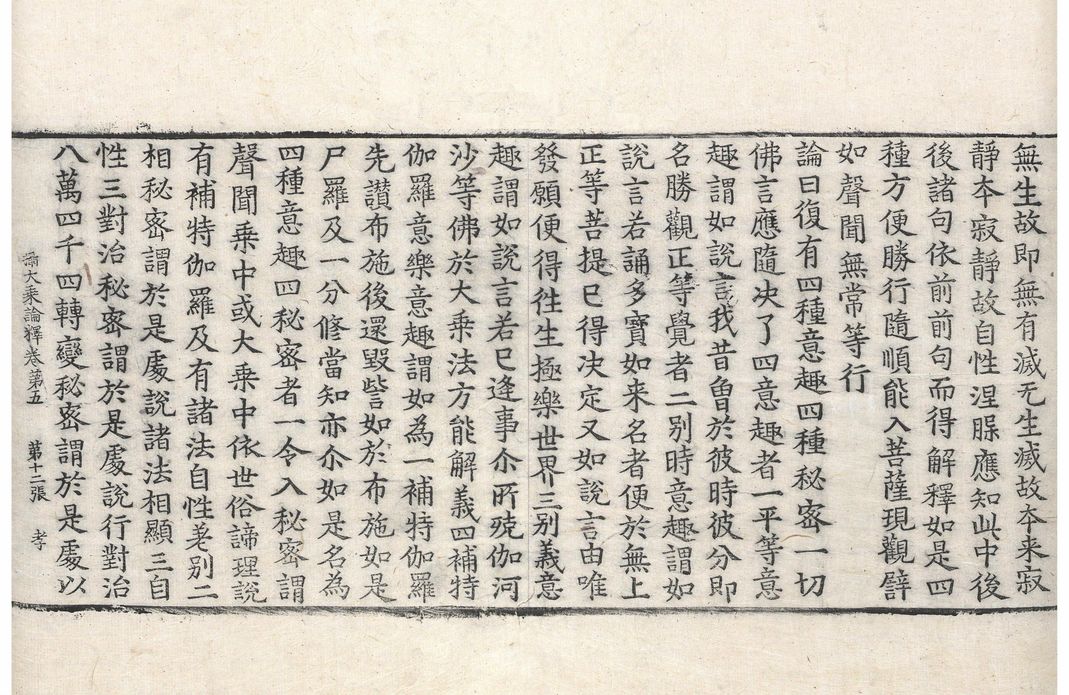 無生故即無有滅无生滅故夲来寂
静夲寂静故自性涅槃應知此中後
後諸句依前前句而得解釋如是四
種方便勝行隨順能入菩薩現觀辟
如聲聞無常等行
論曰復有四種意趣四種秘密一切
佛言應隨决了四意趣者一平等意
趣謂如說言我昔曽於彼時彼分即
名勝觀正等覺者二别時意趣謂如
說言若誦多寶如来名者便於無上
正等菩提已得决定又如說言由唯
發願便得徃生極樂世界三别義意
趣謂如說言若已逢事尒所殑伽河
沙等佛於大乗法方能解義四補特
伽羅意樂意趣謂如為一補特伽羅
先讃布施後還毀訾如於布施如是
尸羅及一分修當知亦尒如是名為
四種意趣四秘密者一令入秘密謂
聲聞乗中或大乗中依世俗諦理說
有補特伽羅及有諸法自性差别二
相秘密謂於是處說諸法相顯三自
性三對治秘密謂於是處說行對治
八萬四千四轉變秘密謂於是處以
攝大乗論釋卷第五 第十二張 孝